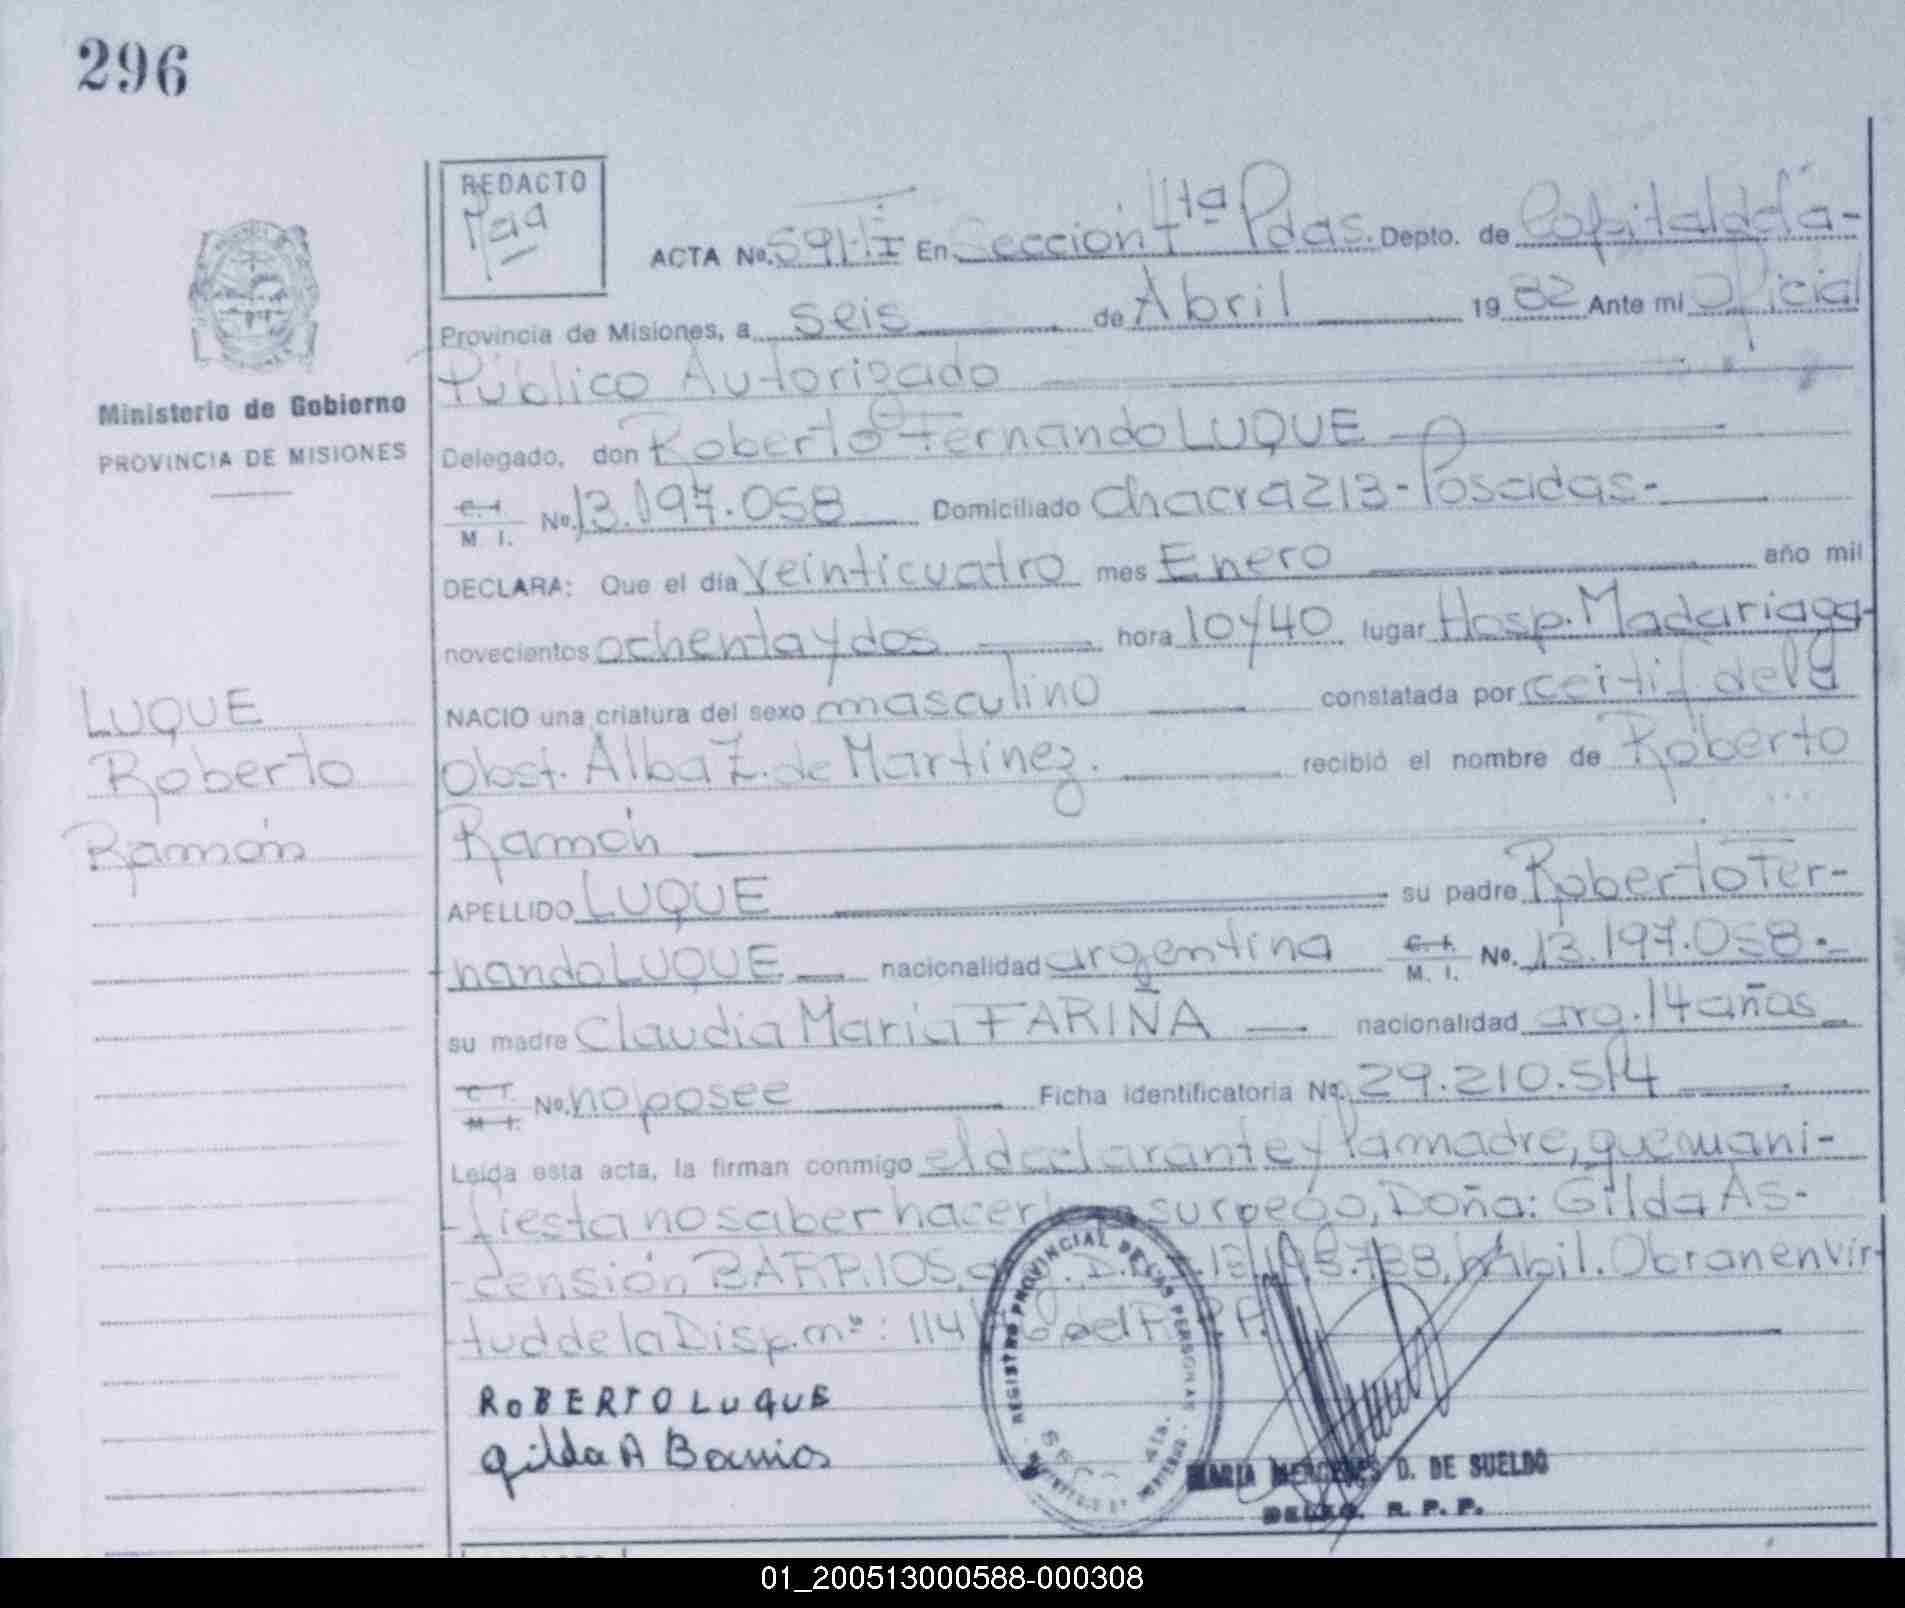 296
REDACTO
ACTA No. 591-I En Sección 4ta Pdas. Depto. de Capital de la-
Provincia de Misiones, a seis de Abril 1982 Ante mi Oficial
Público Autorizado
Ministerio de Gobierno
PROVINCIA DE MISIONES
Delegado, don Roberto Fernando LUQUE
C. I. M. I. No. 13.197.058 Domiciliado Chacra 213-Posadas-
DECLARA: Que el día veinticuatro mes Enero año mil
novecientos ochenta y dos hora 10 y 40 lugar Hosp. Madariaga-
LUQUE
Roberto
Ramón
NACIO una criatura del sexo masculino constatada por certif. de la
Obst. Alba Z. de Martínez. recibió el nombre de Roberto
Ramón
APELLIDO LUQUE su padre Roberto Fer-
nando LUQUE nacionalidad argentina C. I. M. I. No. 13.197.058.-
su madre Claudia Maria FARIÑA nacionalidad arg. 14 años
C. I. M. I. No. no posee Ficha identificatoria No. 29.210.514
Leída esta acta, la firman conmigo el declarante y la madre, que mani-
fiesta no saber hacer su ruego, Doña: Gilda As-
censión BARRIOS, hábil. Obran en vir-
tud de la Disp. nº: 114
ROBERTO LUQUE
Gilda A Barrios
REGISTRO PROVINCIAL DE LAS PERSONAS
MARIA MERCEDES D. DE SUELDO
DELEG. R. P. P.
01_200513000588-000308